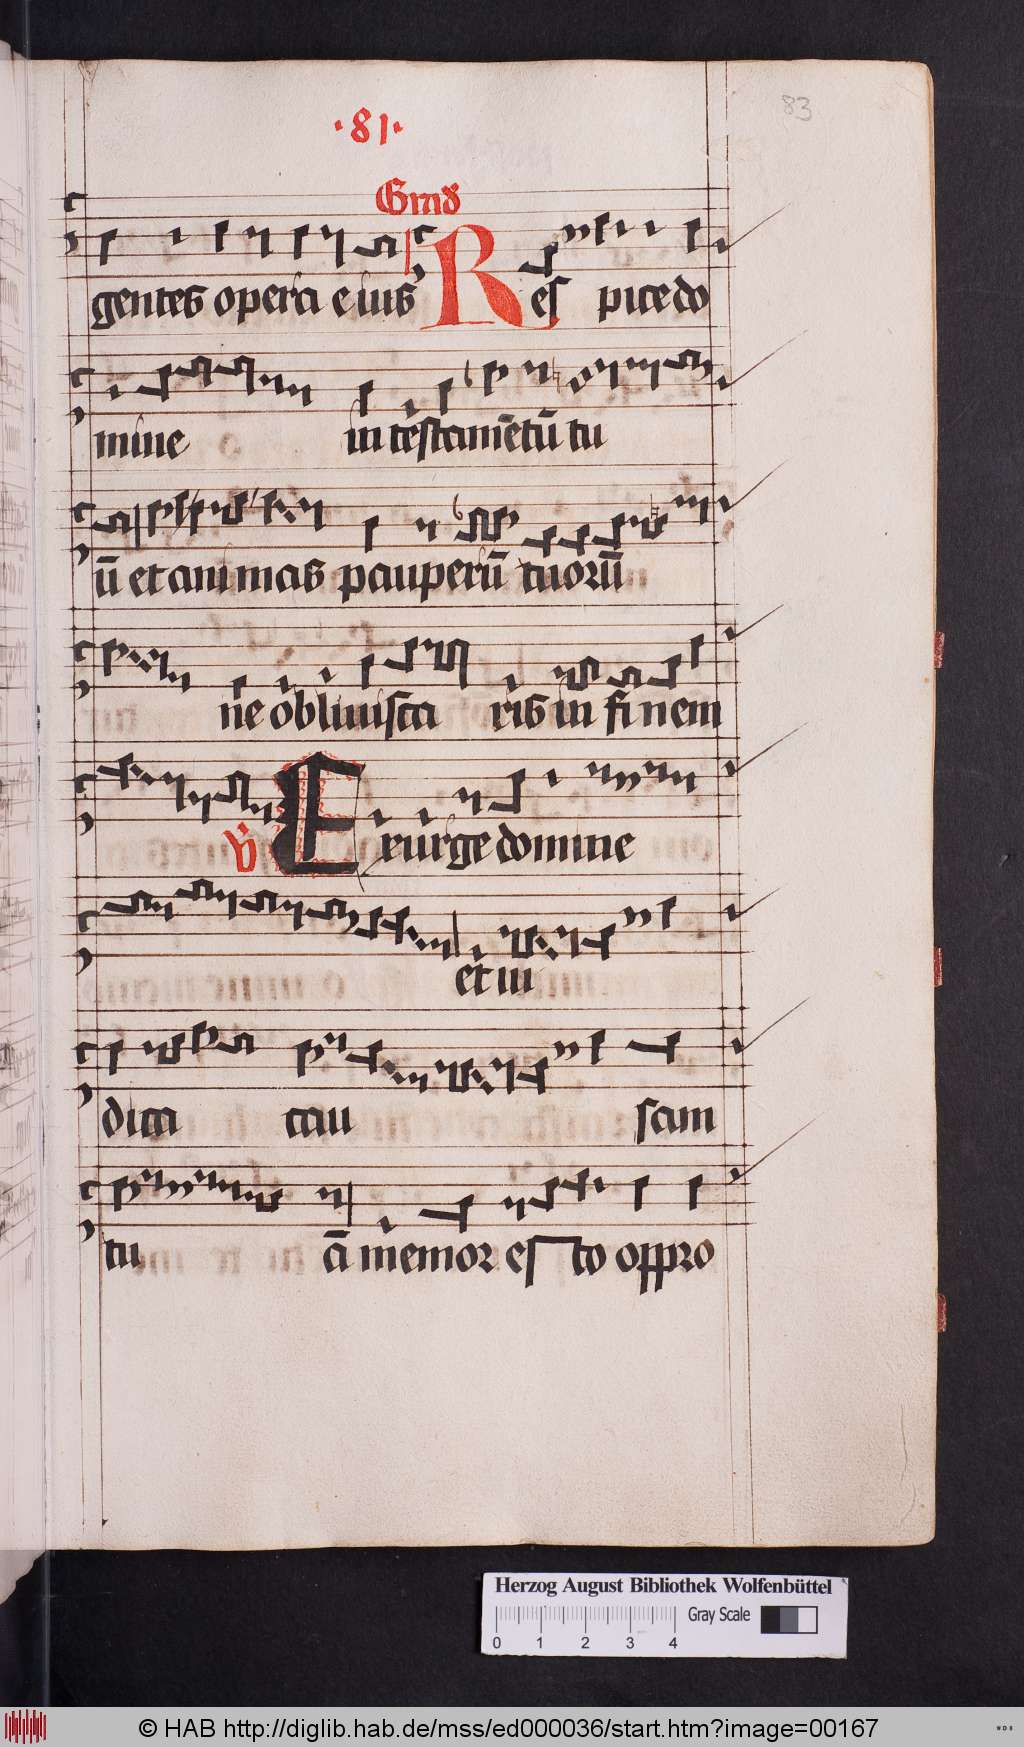 ·81·
83
Grad
gentes opera eius Respice do
mine in testamētū tu
ū et animas pauperū tuorū
ne obliuisca ris in finem
V Exurge domine
et iu
dica cau sam
tu ā memor esto oppro
Herzog August Bibliothek Wolfenbüttel
Gray Scale
0 1 2 3 4
© HAB http://diglib.hab.de/mss/ed000036/start.htm?image=00167